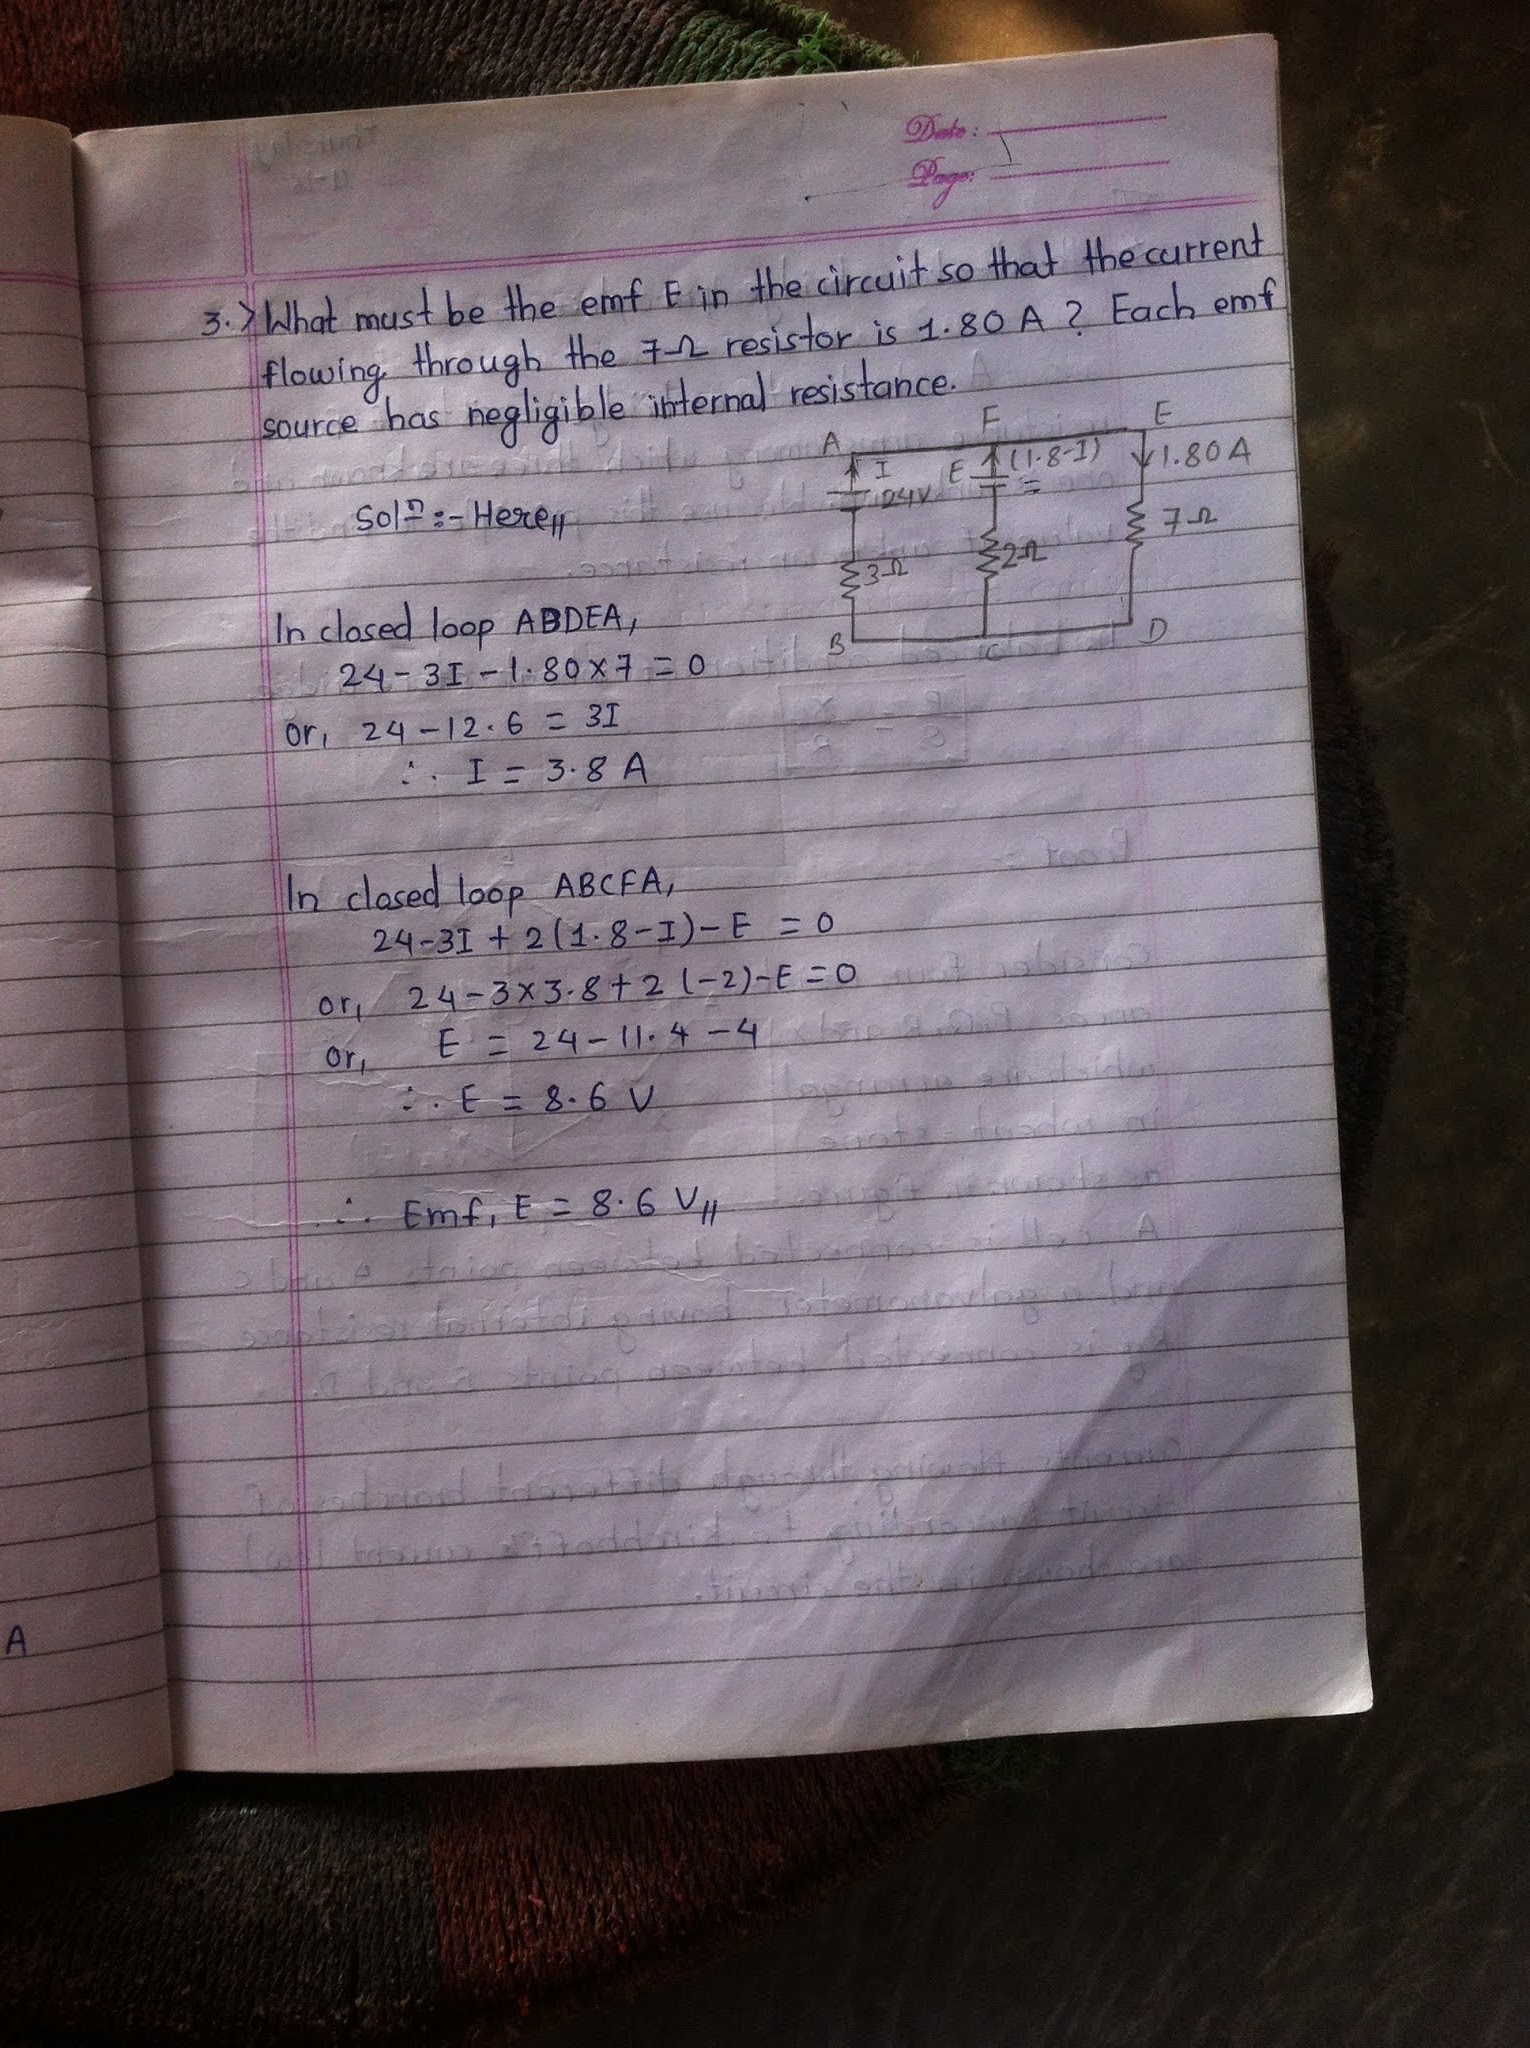 Date:
Page:
3.> What must be the emf E in the circuit so that the current
flowing through the 7Ω resistor is 1.80 A ? Each emf
source has negligible internal resistance.
A
F
E
I
24V
E
(1.8-I)
1.80 A
3Ω
2Ω
7Ω
B
C
D
Solⁿ :- Here,,
In closed loop ABDEA,
24 - 3I - 1.80 x 7 = 0
or, 24 - 12.6 = 3I
∴ I = 3.8 A
In closed loop ABCFA,
24 - 3I + 2(1.8 - I) - E = 0
or, 24 - 3 x 3.8 + 2 (-2) - E = 0
or, E = 24 - 11.4 - 4
∴ E = 8.6 V
∴ Emf, E = 8.6 V,,
A